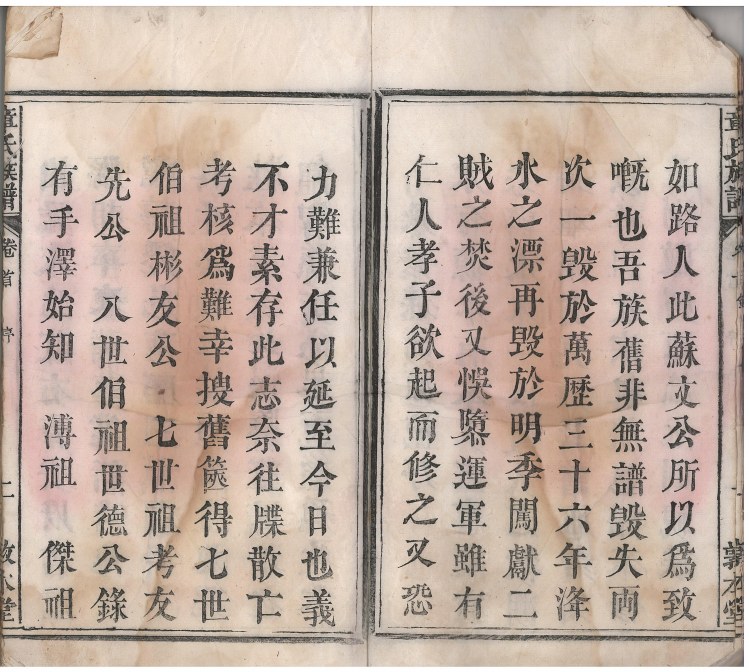 如路人此蘇文公所以爲致
嘅也吾族舊非無譜毀失両
次一毀於萬歷三十六年洚
水之漂再毀於明季闖獻二
賊之焚後又悞隳運軍雖有
仁人孝子欲起而修之又恐
力難兼任以延至今日也義
不才素存此志奈往牒散亡
考核爲難幸搜舊篋得七世
伯祖彬友公 七世祖考友
先公 八世伯祖世德公錄
有手澤始知 溥祖 傑祖
童氏族譜 卷首 序